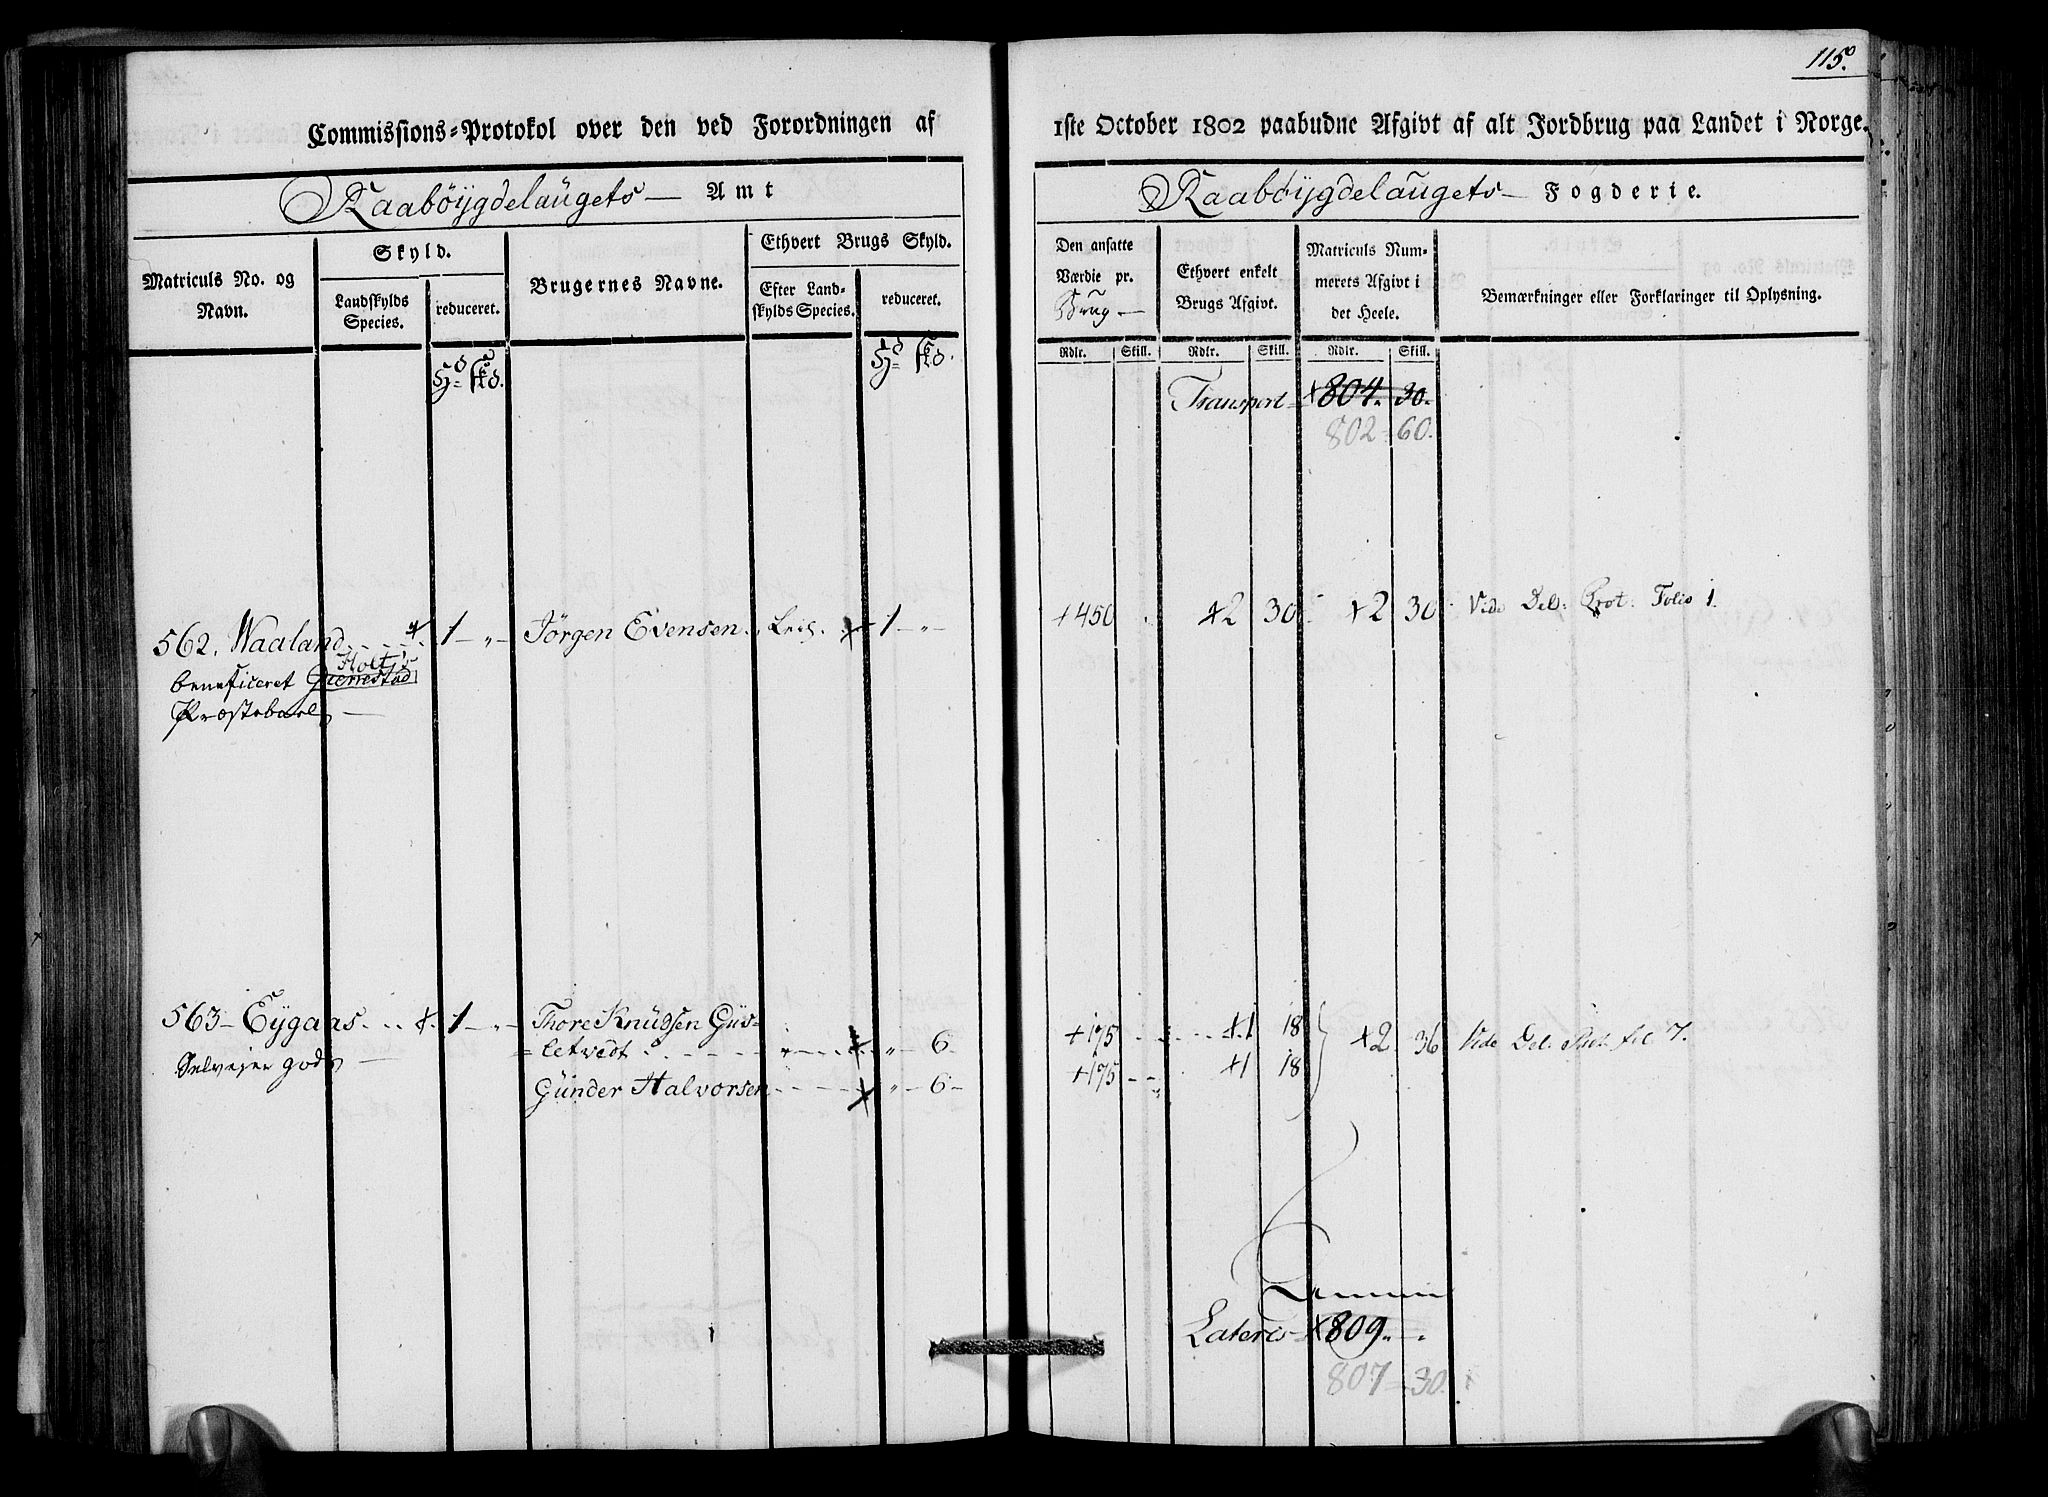 115.
Commissions-Protokol over den ved Forordningen af 1ste October 1802 paabudne Afgivt af alt Jordbrug paa Landet i Norge.
Raabøÿgdelaugets — Amt
Raabøÿgdelaugets — Fogderie.
Matriculs No. og Navn.
Skyld.
Landskylds Species.
reduceret.
Brugernes Navne.
Ethvert Brugs Skyld.
Efter Landskylds Species.
reduceret.
Den ansatte Værdie pr. Brug —
Ethvert enkelt Brugs Afgivt.
Matriculs Nummerets Afgivt i det Heele.
Bemærkninger eller Forklaringer til Oplysning.
Rdlr. Skill. Rdlr. Skill. Rdlr. Skill.
Transport 804. 30.
802 60.
562. Waaland 1 — „ — Jörgen Evensen 1 — „ — +450 +2 30 +2 30 Vide Del: Prot: Folio 1.
beneficeret Gierrestad
Holt
Præstebord —
563 — Eÿgaas 1 — „ — Thore Knudsen Gus=
=letvedt „ — 6. +175 +1 18 +2 36 Vide Del: Prot. fol 7.
Selvejer gods —
Gunder Halvorsen „ — 6 — +175 +1 18
Lateris 809. „
807 30.